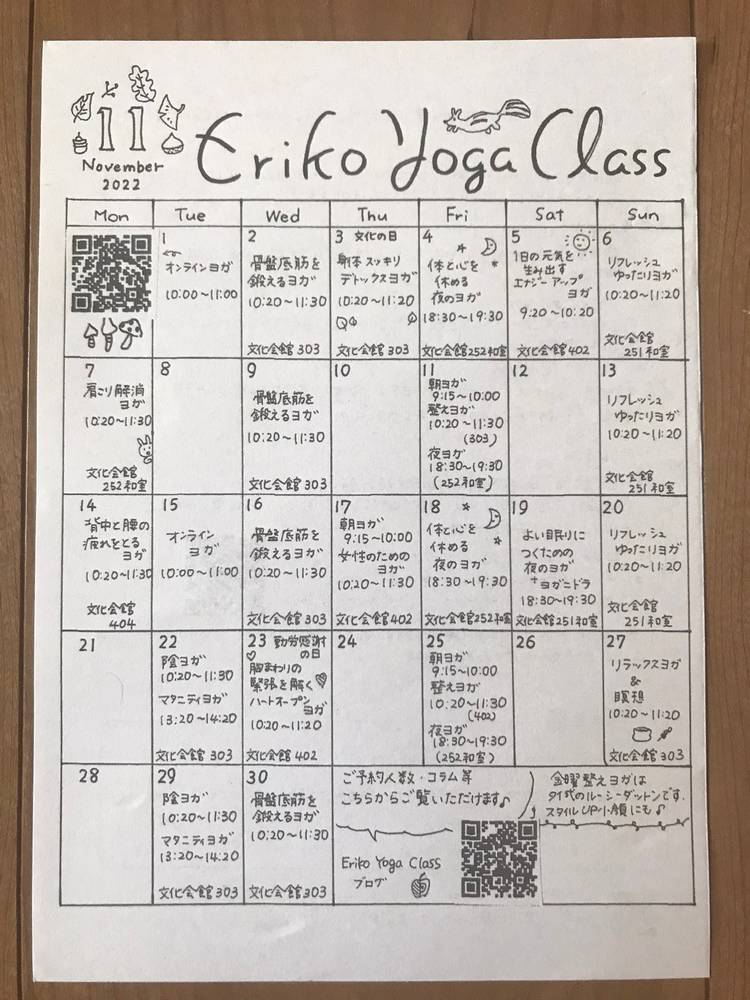 11
November
2022
Eriko Yoga Class
Mon Tue Wed Thu Fri Sat Sun
1
オンラインヨガ
10:00〜11:00
2
骨盤底筋を
鍛えるヨガ
10:20〜11:30
文化会館 303
3 文化の日
身体スッキリ
デトックスヨガ
10:20〜11:20
文化会館 303
4
体と心を
休める
夜のヨガ
18:30〜19:30
文化会館252和室
5
1日の元気を
生み出す
エナジーアップ
ヨガ
9:20〜10:20
文化会館 402
6
リフレッシュ
ゆったりヨガ
10:20〜11:20
文化会館
251和室
7
肩こり解消
ヨガ
10:20〜11:30
文化会館
252和室
8
9
骨盤底筋を
鍛えるヨガ
10:20〜11:30
文化会館303
10
11
朝ヨガ
9:15〜10:00
整えヨガ
10:20〜11:30
(303)
夜ヨガ
18:30〜19:30
(252和室)
12
13
リフレッシュ
ゆったりヨガ
10:20〜11:20
文化会館
251和室
14
背中と腰の
疲れをとる
ヨガ
10:20〜11:30
文化会館
404
15
オンライン
ヨガ
10:00〜11:00
16
骨盤底筋を
鍛えるヨガ
10:20〜11:30
文化会館303
17
朝ヨガ
9:15〜10:00
女性のための
ヨガ
10:20〜11:30
文化会館402
18
体と心を
休める
夜のヨガ
18:30〜19:30
文化会館252和室
19
よい眠りに
つくための
夜のヨガ
+ヨガニドラ
18:30〜19:30
文化会館251和室
20
リフレッシュ
ゆったりヨガ
10:20〜11:20
文化会館
251和室
21
22
陰ヨガ
10:20〜11:30
マタニティヨガ
13:20〜14:20
文化会館 303
23 勤労感謝
の日
胸まわりの
緊張を解く
ハートオープン
ヨガ
10:20〜11:20
文化会館 402
24
25
朝ヨガ
9:15〜10:00
整えヨガ
10:20〜11:30
(402)
夜ヨガ
18:30〜19:30
(252和室)
26
27
リラックスヨガ
&
瞑想
10:20〜11:20
文化会館303
28
29
陰ヨガ
10:20〜11:30
マタニティヨガ
13:20〜14:20
文化会館303
30
骨盤底筋を
鍛えるヨガ
10:20〜11:30
文化会館303
ご予約人数・コラム等
こちらからご覧いただけます♪
Eriko Yoga Class
ブログ
金曜整えヨガは
タイ式のルーシーダットンです.
スタイルUP小顔にも♪